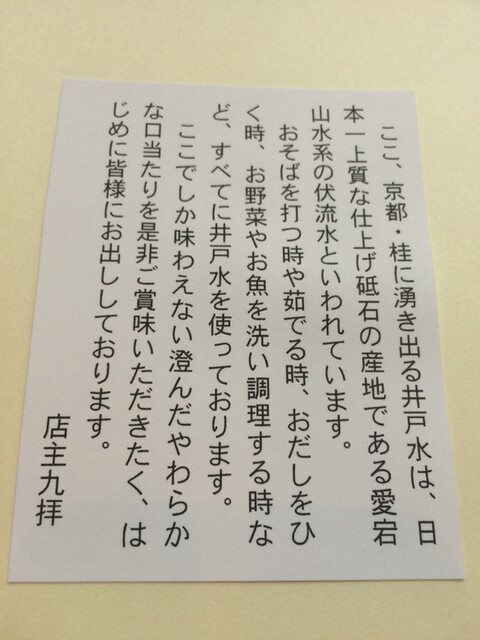 ここ、京都・桂に湧き出る井戸水は、日
本一上質な仕上げ砥石の産地である愛宕
山水系の伏流水といわれています。
おそばを打つ時や茹でる時、おだしをひ
く時、お野菜やお魚を洗い調理する時な
ど、すべてに井戸水を使っております。
ここでしか味わえない澄んだやわらか
な口当たりを是非ご賞味いただきたく、は
じめに皆様にお出ししております。
店主九拝